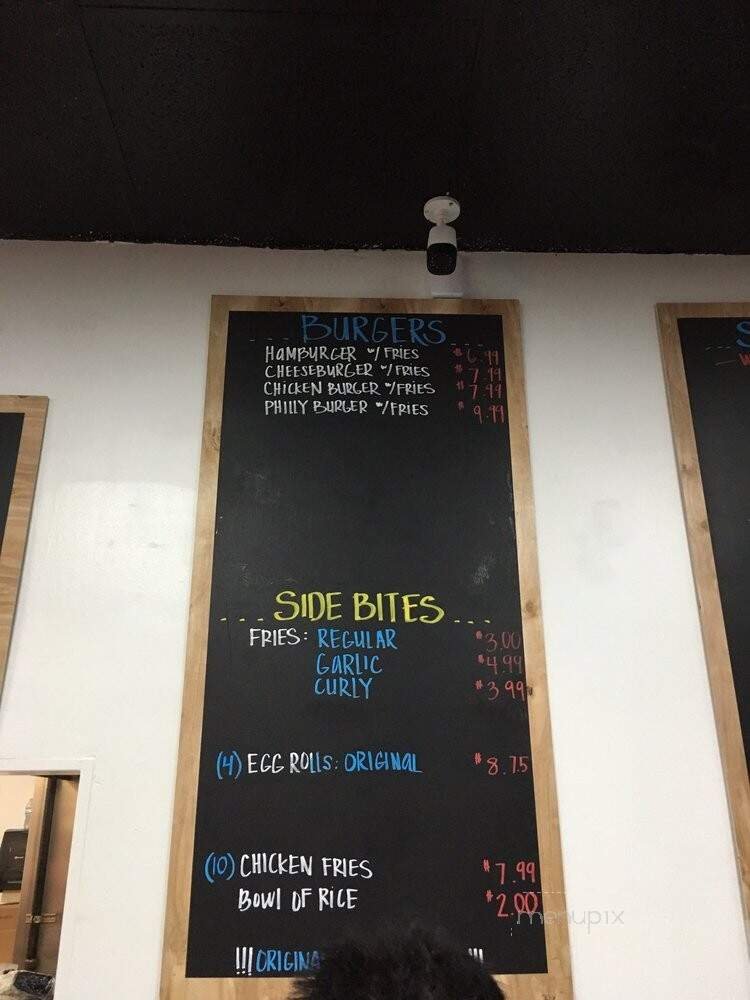 BURGERS
HAMBURGER w/ FRIES $6.99
CHEESEBURGER w/ FRIES $7.99
CHICKEN BURGER w/FRIES $7.99
PHILLY BURGER w/FRIES $9.99
SIDE BITES
FRIES: REGULAR $3.00
GARLIC $4.99
CURLY $3.99
(4) EGG ROLLS: ORIGINAL $8.75
(10) CHICKEN FRIES $7.99
BOWL OF RICE $2.00
menupix
!!! ORIGINA !!!